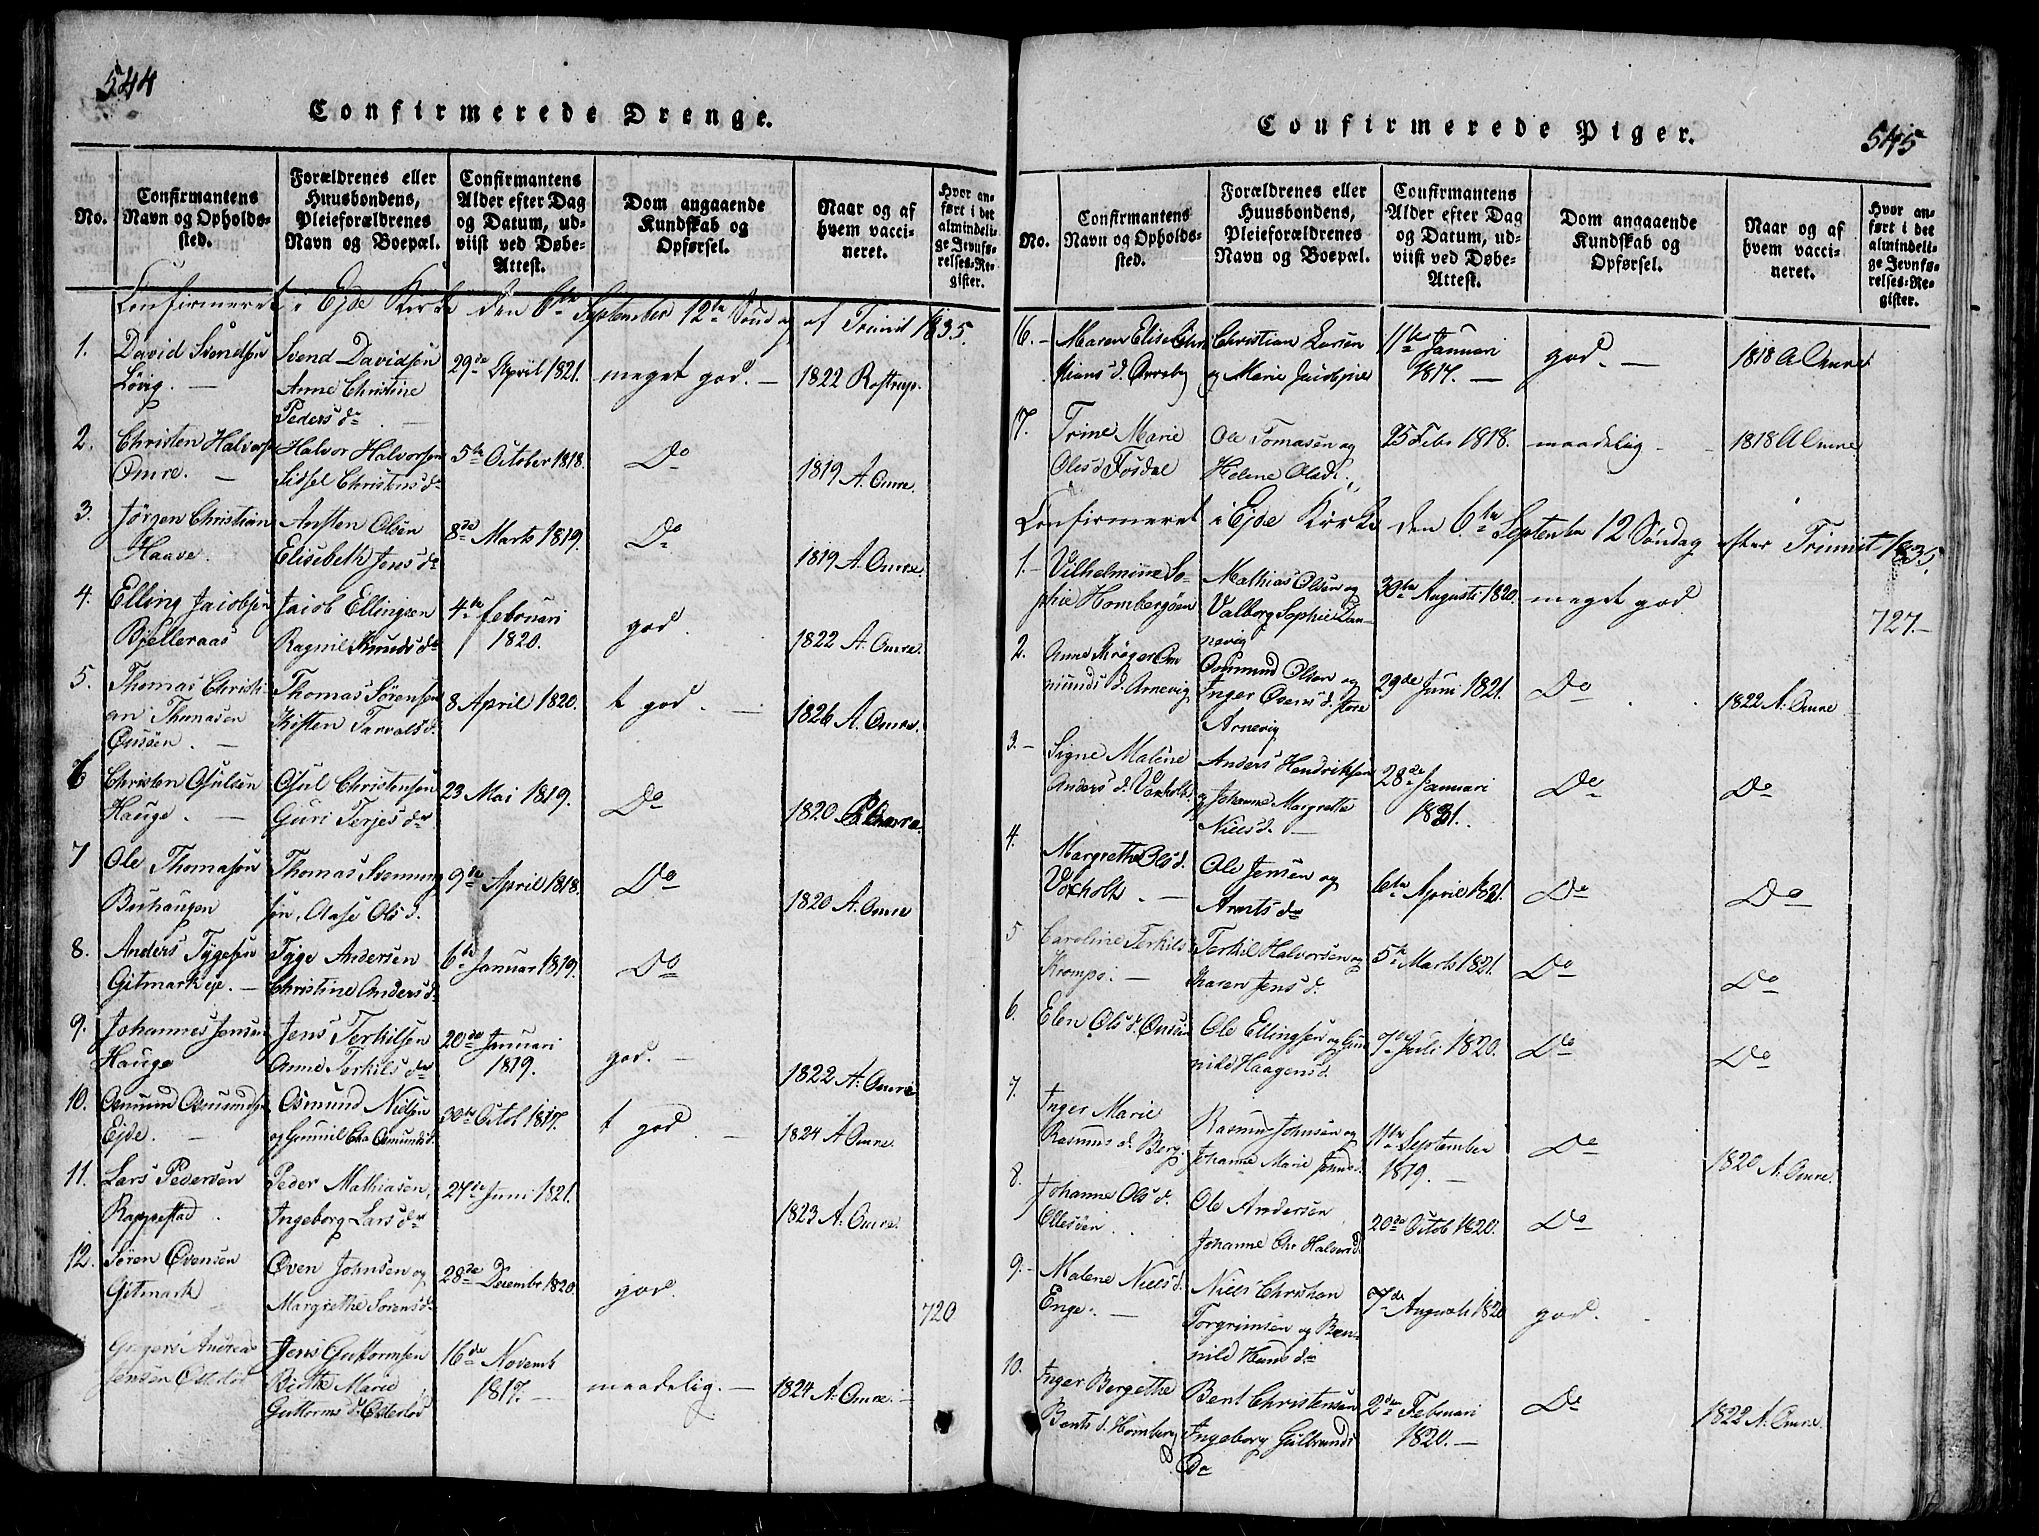 544
Confirmerede Drenge.
No.
Confirmantens
Navn og Opholds-
sted.
Forældrenes eller
Huusbondens,
Pleieforældrenes
Navn og Boepæl.
Confirmantens
Alder efter Dag
og Datum, ud-
viist ved Døbe-
Attest.
Dom angaaende
Kundskab og
Opførsel.
Naar og af
hvem vacci-
neret.
Hvor an-
ført i det
almindeli-
ge Jevnfø-
relses-Re-
gister.
Confirmeret i Ejde Kirke den 6te September 12te Sønd ag af Trinit 1835
1. David Svendsøn
Løvig. —
Svend Davidsøn
Anne Christine
Peders d.
29de April 1821.
meget god. —
1822 Rostrup.
2. Christen Halvors
Omre. —
Halvor Halvorsen
Sidsel Christens d.
5te October 1818.
Do
1819 A. Omre.
3. Jørgen Christian
Haave.
Arsten Olsen
Elisebeth Jens d.
8de Marts 1819.
Do
1819 A. Omre.
4. Elling Jacobsen
Bjelleraas
Jacob Ellingsen
Ragnil Knuds d.
4de Februari
1820.
god.
1822 A. Omre.
5. Thomas Christi-
an Thomasen
Omsøen. —
Thomas Sørensen
Kisten Tarvals d.
8 April 1820.
t god. —
1826 A. Omre.
6 Christen Osulsen
Hauge. —
Osul Christensen
Guri Terjes d.
23 Mai 1819.
Do
1820 A. Omre.
7 Ole Thomasøn
Buhaugen
Thomas Svennung
søn, Aase Ols d.
9de April 1818.
Do
1820 A. Omre
8. Anders Tygesen
Gitmark eje. —
Tyge Andersen
Christine Anders d.
6te Januar 1819.
Do
9. Johannes Jensen
Hauge
Jens Terkilsen
Anne Terkils d.
20de Januari
1819.
god. —
1822 A. Omre
10. Osmund Osmunds
Ejde. —
Osmund Nielsen
og Gunnil Chr Osmunds d.
30te Octob 1817.
t god. —
1824 A. Omre.
11. Lars Pedersen
Rappestad.
Peder Mathiasen,
Ingeborg Lars d.
27de Juni 1821.
1823 A. Omre.
12. Søren Øvensen
Gitmark
Øven Johnsen og
Margrethe Sorens d.
28de Decembr 1820.
god.
720
Gregers Andreas
Jensen Osterlod
Jens Guttormsen
Birthe Marie
Guttorms d. Osterlod
16de Novemb
1817. —
maadelig. —
1824 A. Omre. —
545
Confirmerede Piger.
No.
Confirmantens
Navn og Opholds-
sted.
Forældrenes eller
Huusbondens,
Pleieforældrenes
Navn og Boepæl.
Confirmantens
Alder efter Dag
og Datum, ud-
viist ved Døbe-
Attest.
Dom angaaende
Kundskab og
Opførsel.
Naar og af
hvem vacci-
neret.
Hvor an-
ført i det
almindeli-
ge Jevnfø-
relses-Re-
gister.
16. — Maren Elise Chri
stians d.
Christian Larsen
og Marie Jacobine
11te Januari
1817. —
god. —
1818 A Omre
17. Trine Marie
Oles d Fosdal
Ole Tomasen og
Helene Olsd.
25 Febr 1818.
maadelig —
1818 A Omre
Confirmeret i Ejde Kirke den 6te Septembr 12 Søndag efter Trinit 1835.
1. — Vilhelmine So-
phie Hombergsøen
Mathias Olsen og
Valborg Sophie Dan-
nevig
30te Augusti 1820.
meget god
727. —
2. Anne Krøger Os
munds d. Arnevig
Osmund Olsen og
Inger Ovens d. store
Arnevig
29de Juni 1821.
Do
1822 A. Omre
3. — Signe Malene
Anders d. Voxholt
Anders Hendriksen
og Johanne Margrethe
Niels d. —
28de Januari
1821.
Do
Do
4. Margrethe Ols d.
Voxholt. —
Ole Jensen og
Arnts d.
6te April 1821.
Do
Do
5 Caroline Terkils
Krompø. —
Terkil Halvorsen og
Karen Jens d.
5te Marts 1821.
Do
Do
6. Elen Ols d.
Ole Ellingsen og Gun
nild Haagens d.
7de Juli 1820.
Do
Do
7. Inger Marie
Rasmus d. Berg.
Rasmus Johnsen og
Johanne Marie Johns d.
11te September
1819. —
Do
1820 A. Omre.
8. Johanne Ols d.
Ellesøen
Ole Andersen
Johanne Chr Halvors d.
20de Octob 1820.
Do
9. — Malene Niels d.
Enge. —
Niels Christian
Torgrimsen og
nild Hans d.
7de Augusti 1820
god.
10. Inger Bergethe
Bents d. Homberg
Bent Christensen
Ingeborg Gulbrands
Do
2den Februari
1820. —
Do
1822 A. Omre.